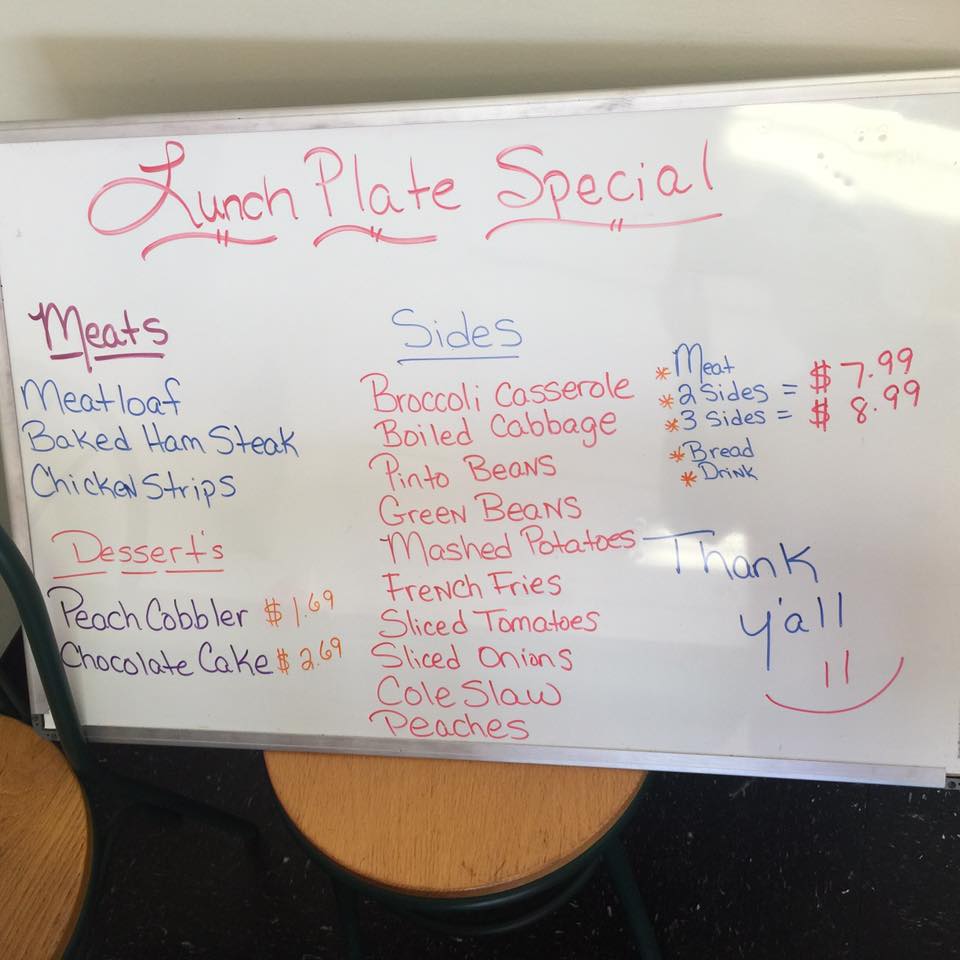 Lunch Plate Special
Meats
Meatloaf
Baked Ham Steak
Chicken Strips
Dessert's
Peach Cobbler $1.69
Chocolate Cake $2.69
Sides
Broccoli Casserole
Boiled Cabbage
Pinto Beans
Green Beans
Mashed Potatoes
French Fries
Sliced Tomatoes
Sliced Onions
Cole Slaw
Peaches
* Meat
* 2 Sides = $7.99
* 3 Sides = $8.99
* Bread
* Drink
Thank
y'all